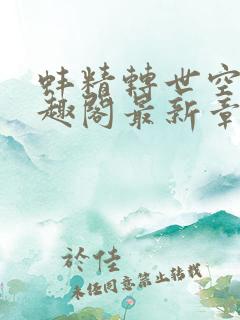 蚌精轉世空
趣閣最新章
於佳
未任同意禁止转载